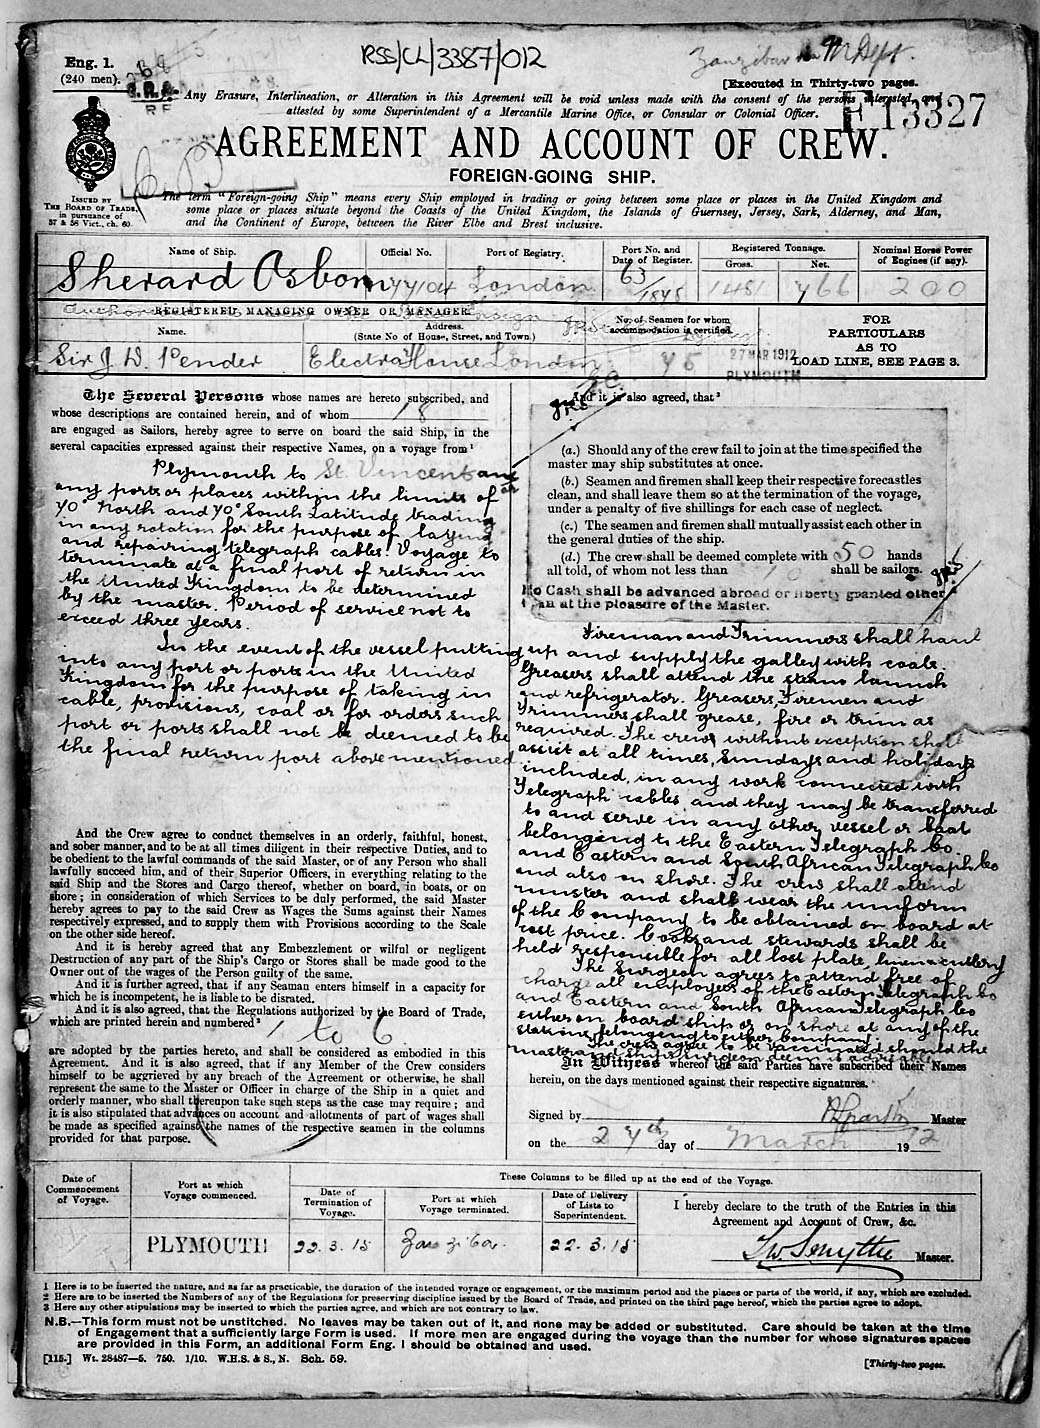 RSS/CL/3387/012
Zanzibar M Dept.
Eng. 1.
(240 men).
[Executed in Thirty-two pages.
R F
Any Erasure, Interlineation, or Alteration in this Agreement will be void unless made with the consent of the persons interested, and
attested by some Superintendent of a Mercantile Marine Office, or Consular or Colonial Officer.
F 13327
AGREEMENT AND ACCOUNT OF CREW.
FOREIGN-GOING SHIP.
ISSUED BY
THE BOARD OF TRADE,
in pursuance of
57 & 58 Vict., ch. 60.
The term "Foreign-going Ship" means every Ship employed in trading or going between some place or places in the United Kingdom and
some place or places situate beyond the Coasts of the United Kingdom, the Islands of Guernsey, Jersey, Sark, Alderney, and Man,
and the Continent of Europe, between the River Elbe and Brest inclusive.
Name of Ship. Official No. Port of Registry. Port No. and Date of Register. Registered Tonnage. Gross. Net. Nominal Horse Power of Engines (if any).
Sherard Osborn 77104 London 63/1878 1481 766 200
REGISTERED MANAGING OWNER OR MANAGER
Name. Address. (State No. of House, Street, and Town.) No. of Seamen for whom accommodation is certified.
Sir J D. Pender Electra House London 75
27 MAR 1912
PLYMOUTH
FOR
PARTICULARS
AS TO
LOAD LINE, SEE PAGE 3.
The Several Persons whose names are hereto subscribed, and
whose descriptions are contained herein, and of whom 18
are engaged as Sailors, hereby agree to serve on board the said Ship, in the
several capacities expressed against their respective Names, on a voyage from¹
Plymouth to St. Vincent and
any ports or places within the limits of
70° North and 70° South Latitude trading
in any rotation for the purpose of laying
and repairing telegraph cables. Voyage to
terminate at a final port of return in
the United Kingdom to be determined
by the master. Period of service not to
exceed three years.
In the event of the vessel putting
into any port or ports in the United
Kingdom for the purpose of taking in
cable, provisions, coal or for orders such
port or ports shall not be deemed to be
the final return port above mentioned
And the Crew agree to conduct themselves in an orderly, faithful, honest,
and sober manner, and to be at all times diligent in their respective Duties, and to
be obedient to the lawful commands of the said Master, or of any Person who shall
lawfully succeed him, and of their Superior Officers, in everything relating to the
said Ship and the Stores and Cargo thereof, whether on board, in boats, or on
shore; in consideration of which Services to be duly performed, the said Master
hereby agrees to pay to the said Crew as Wages the Sums against their Names
respectively expressed, and to supply them with Provisions according to the Scale
on the other side hereof.
And it is hereby agreed that any Embezzlement or wilful or negligent
Destruction of any part of the Ship's Cargo or Stores shall be made good to the
Owner out of the wages of the Person guilty of the same.
And it is further agreed, that if any Seaman enters himself in a capacity for
which he is incompetent, he is liable to be disrated.
And it is also agreed, that the Regulations authorized by the Board of Trade,
which are printed herein and numbered² 1 to 6
are adopted by the parties hereto, and shall be considered as embodied in this
Agreement. And it is also agreed, that if any Member of the Crew considers
himself to be aggrieved by any breach of the Agreement or otherwise, he shall
represent the same to the Master or Officer in charge of the Ship in a quiet and
orderly manner, who shall thereupon take such steps as the case may require; and
it is also stipulated that advances on account and allotments of part of wages shall
be made as specified against the names of the respective seamen in the columns
provided for that purpose.
And it is also agreed, that³
(a.) Should any of the crew fail to join at the time specified the
master may ship substitutes at once.
(b.) Seamen and firemen shall keep their respective forecastles
clean, and shall leave them so at the termination of the voyage,
under a penalty of five shillings for each case of neglect.
(c.) The seamen and firemen shall mutually assist each other in
the general duties of the ship.
(d.) The crew shall be deemed complete with 50 hands
all told, of whom not less than 10 shall be sailors.
No Cash shall be advanced abroad or liberty granted other
than at the pleasure of the Master.
Firemen and Trimmers shall haul
up and supply the galley with coals.
Greasers shall attend the steam launch
and refrigerator. Greasers, Firemen and
Trimmers shall grease, fire or trim as
required. The crew without exception shall
assist at all times, Sundays and holidays
included, in any work connected with
Telegraph cables, and they may be transferred
to and serve in any other vessel or boat
belonging to the Eastern Telegraph Co.
and Eastern and South African Telegraph Co
and also on shore. The crew shall attend
muster and shall wear the uniform
of the Company to be obtained on board at
cost price. Cooks and stewards shall be
held responsible for all lost plate, linen or cutlery
The Surgeon agrees to attend free of
charge all employees of the Eastern Telegraph Co
and Eastern and South African Telegraph Co
either on board ship or on shore at any of the
stations belonging to either Company.
The crew agree to be vaccinated should the
master and ship's surgeon deem it advisable
In Witness whereof the said Parties have subscribed their Names
herein, on the days mentioned against their respective signatures.
Signed by Master
on the 27th day of March 1912
Date of Commencement of Voyage. Port at which Voyage commenced. These Columns to be filled up at the end of the Voyage.
Date of Termination of Voyage. Port at which Voyage terminated. Date of Delivery of Lists to Superintendent. I hereby declare to the truth of the Entries in this Agreement and Account of Crew, &c.
PLYMOUTH 22.3.15 Zanzibar. 22.3.15 Smythe Master.
1 Here is to be inserted the nature, and as far as practicable, the duration of the intended voyage or engagement, or the maximum period and the places or parts of the world, if any, which are excluded.
2 Here are to be inserted the Numbers of any of the Regulations for preserving discipline issued by the Board of Trade, and printed on the third page hereof, which the parties agree to adopt.
3 Here any other stipulations may be inserted to which the parties agree, and which are not contrary to law.
N.B.—This form must not be unstitched. No leaves may be taken out of it, and none may be added or substituted. Care should be taken at the time
of Engagement that a sufficiently large Form is used. If more men are engaged during the voyage than the number for whose signatures spaces
are provided in this Form, an additional Form Eng. 1 should be obtained and used.
[115.] Wt. 28487—5. 750. 1/10. W.H.S. & S., N. Sch. 59.
[Thirty-two pages.